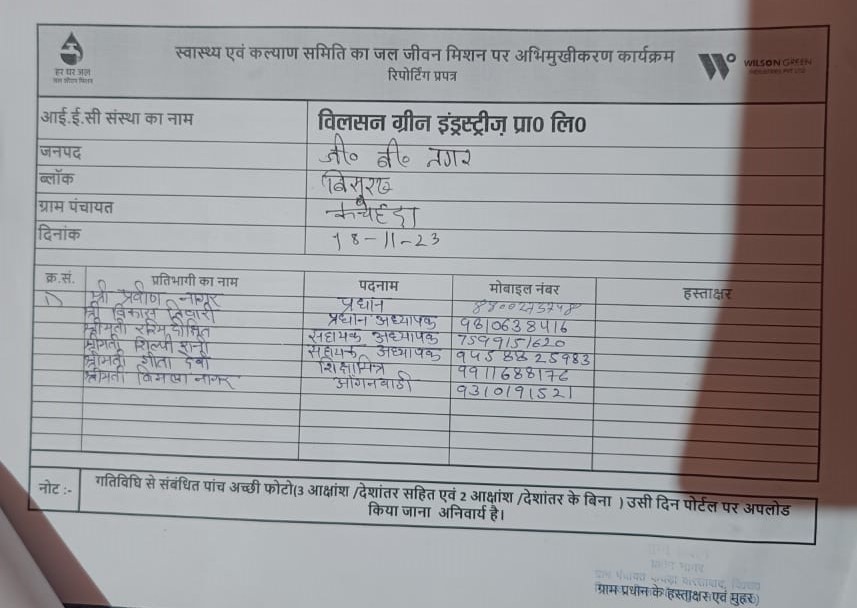 हर घर जल
जल जीवन मिशन
स्वास्थ्य एवं कल्याण समिति का जल जीवन मिशन पर अभिमुखीकरण कार्यक्रम
रिपोर्टिंग प्रपत्र
WILSON GREEN
आई.ई.सी संस्था का नाम विलसन ग्रीन इंड्रस्ट्रीज़ प्रा0 लि0
जनपद जी० बी० नगर
ब्लॉक बिसरख
ग्राम पंचायत कचैड़ा
दिनांक 18-11-23
क्र.सं. प्रतिभागी का नाम पदनाम मोबाइल नंबर हस्ताक्षर
1) श्री प्रवीण नागर प्रधान
श्री विकास तिवारी प्रधान अध्यापक 9810638416
श्रीमती रश्मि दीक्षित सहायक अध्यापक 7599151620
श्रीमती शिल्पी रानी सहायक अध्यापक 9458825983
श्रीमती गीता देवी शिक्षामित्र 9911688176
श्रीमती विमला नागर आंगनवाडी 9310191521
नोट :- गतिविधि से संबंधित पांच अच्छी फोटो(3 आक्षांश /देशांतर सहित एवं 2 आक्षांश /देशांतर के बिना ) उसी दिन पोर्टल पर अपलोड
किया जाना अनिवार्य है।
ग्राम प्रधान के हस्ताक्षर एवं मुहर)